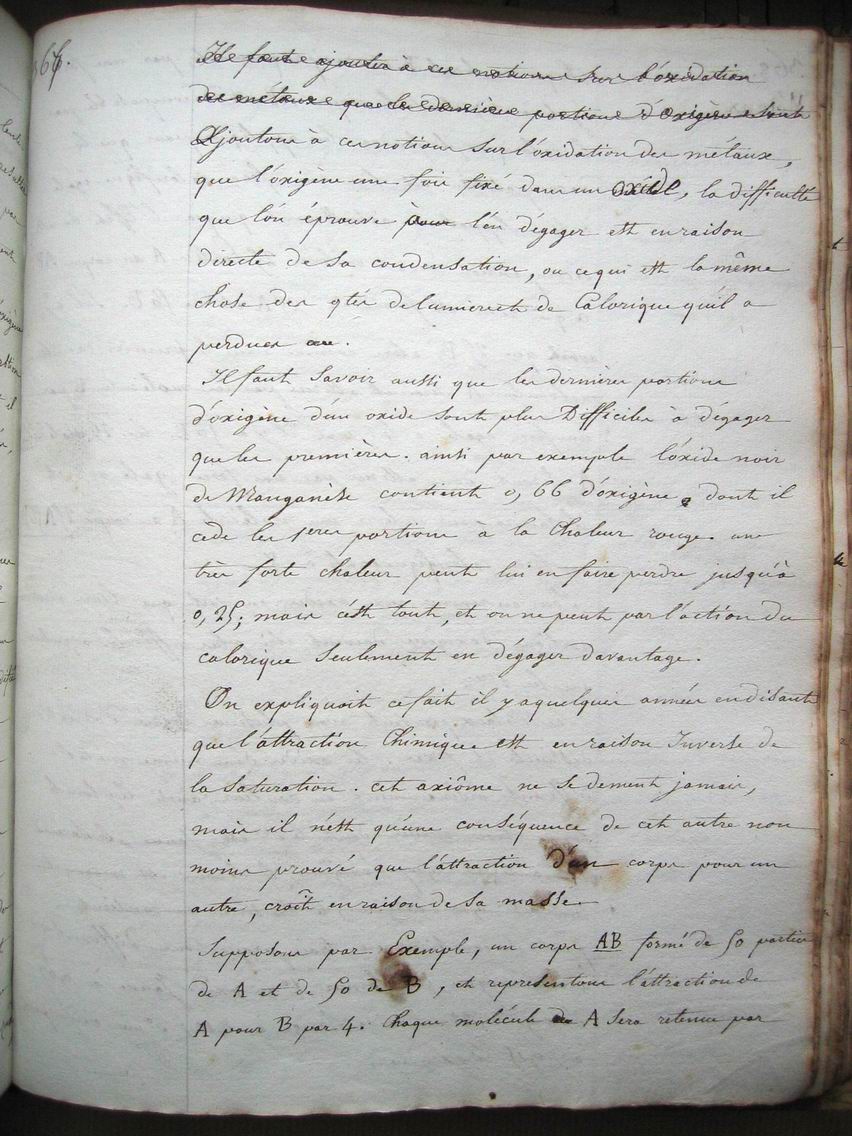 366.
Il faut ajouter à ces notions sur l'oxidation
des métaux que les dernières portions d'oxigène sont
Ajoutons à ces notions sur l'oxidation des métaux,
que l'oxigène une fois fixé dans un oxide, la difficulté
que l'on éprouve pour l'en dégager est en raison
directe de sa condensation, ou ce qui est la même
chose des qtés de lumière et de Calorique qu'il a
perdues.
Il faut Savoir aussi que les dernières portions
d'oxigene d'un oxide sont plus Difficiles à dégager
que les premières. ainsi par exemple l'oxide noir
de Manganèse contient 0,66 d'oxigène, dont il
cède les 1eres portions à la Chaleur rouge. une
très forte chaleur peut lui en faire perdre jusqu'à
0,25; mais c'est tout, et on ne peut par l'action du
calorique Seulement en dégager davantage.
On expliquoit ce fait il y a quelques années en disant
que l'attraction Chimique est en raison Inverse de
la Saturation. cet axiôme ne se dement jamais,
mais il n'est qu'une conséquence de cet autre non
moins prouvé que l'attraction d'un corps pour un
autre, croît en raison de sa masse.
Supposons par Exemple, un corps AB formé de 50 parties
de A et de 50 de B, et representons l'attraction de
A pour B par 4. Chaque molécule de A Sera retenue par